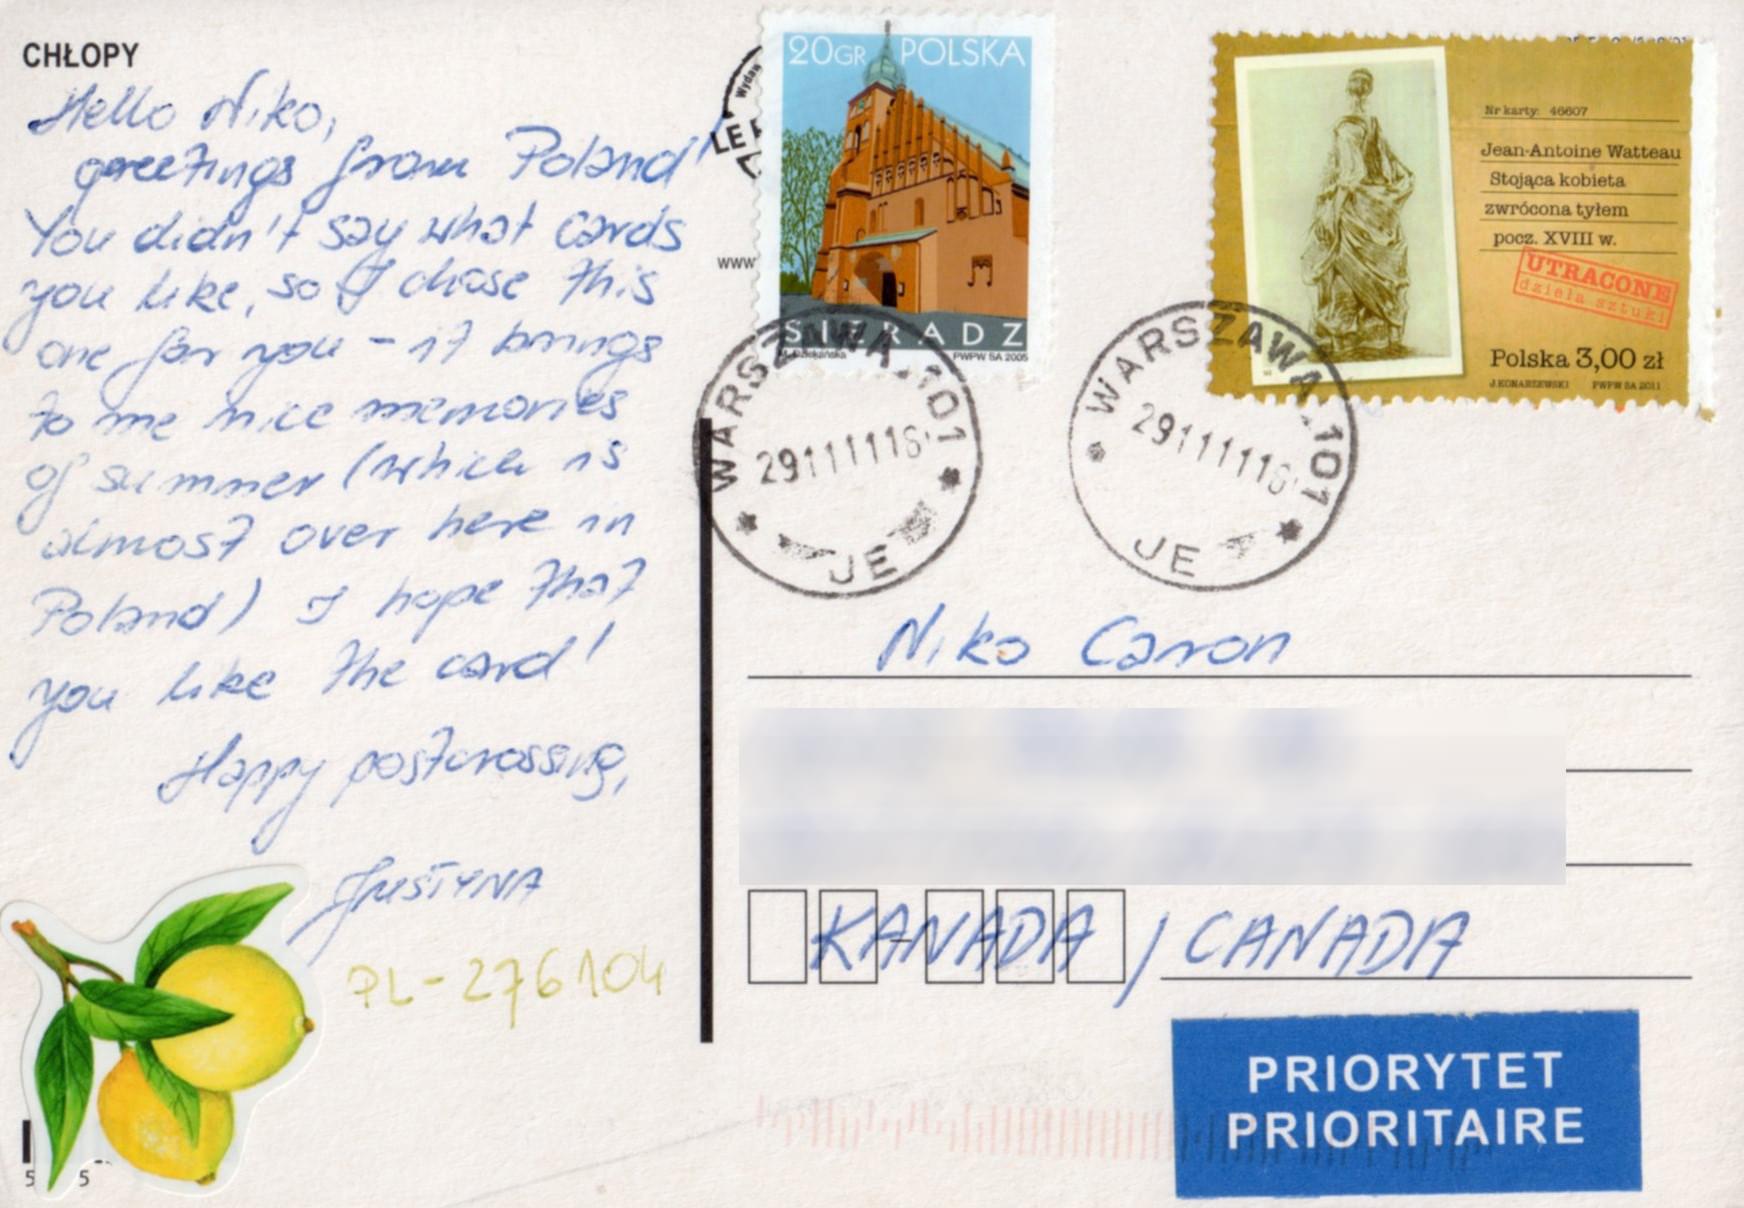 CHŁOPY
Hello Niko,
greetings from Poland!
You didn't say what cards
you like, so I chose this
one for you – it brings
to me nice memories
of summer (which is
almost over here in
Poland) I hope that
you like the card!
Happy postcrossing,
JUSTYNA
PL-276104
20GR POLSKA
SIERADZ
PWPW SA 2005
Wydaw
LE
www
Nr karty: 46607
Jean-Antoine Watteau
Stojąca kobieta
zwrócona tyłem
pocz. XVIII w.
UTRACONE
dzieła sztuki
Polska 3,00 zł
J.KONARZEWSKI PWPW SA 2011
WARSZAWA 101
JE
WARSZAWA 101
JE
Niko Caron
KANADA / CANADA
PRIORYTET
PRIORITAIRE
5 5